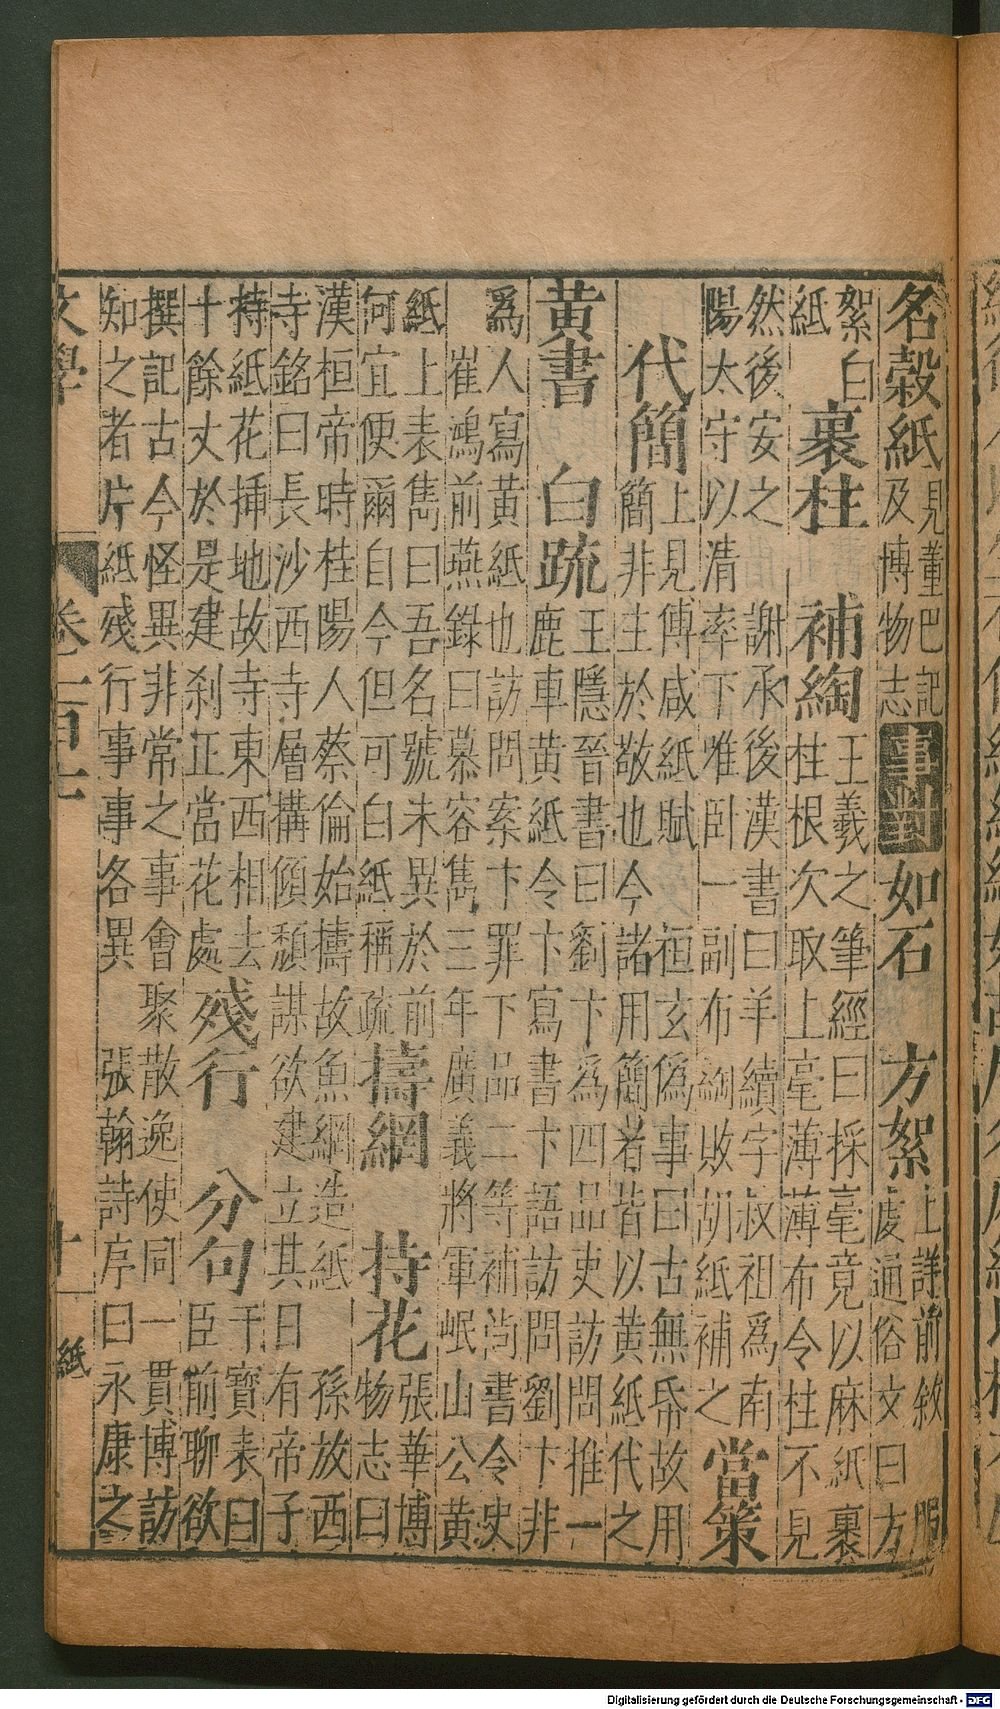 名穀紙見董巴記及博物志事對如石　方絮上詳前敘服虔通俗文曰方
絮白紙　裹柱　補綯王羲之筆經曰採毫竟以麻紙裹柱根次取上毫薄薄布令柱不見
然後安之　謝承後漢書曰羊續字叔祖為南陽太守以清率下唯臥一副布綯敗胡紙補之當策
代簡上見傅咸紙賦　桓玄偽事曰古無帋故用簡非主於敬也今諸用簡者皆以黄紙代之
黄書　白疏王隱晉書曰劉卞為四品吏訪問推一鹿車黄紙令卞寫書卞語訪問劉卞非
為人寫黄紙也訪問案卞罪下品二等補尚書令史　崔鴻前燕錄曰慕容雋三年廣義將軍岷山公黄
紙上表雋曰吾名號未異於前何宜便爾自今但可白紙稱疏擣網　持花張華博物志曰
漢桓帝時桂陽人蔡倫始擣故魚網造紙　孫放西寺銘曰長沙西寺層構傾頹謀欲建立其日有帝子
持紙花插地故寺東西相去十餘丈於是建刹正當花處殘行　分句干寶表曰臣前聊欲
撰記古今怪異非常之事會聚散逸使同一貫博訪知之者片紙殘行事事各異　張翰詩序曰永康之
文學　卷二百十一　十一　紙
Digitalisierung gefördert durch die Deutsche Forschungsgemeinschaft - DFG